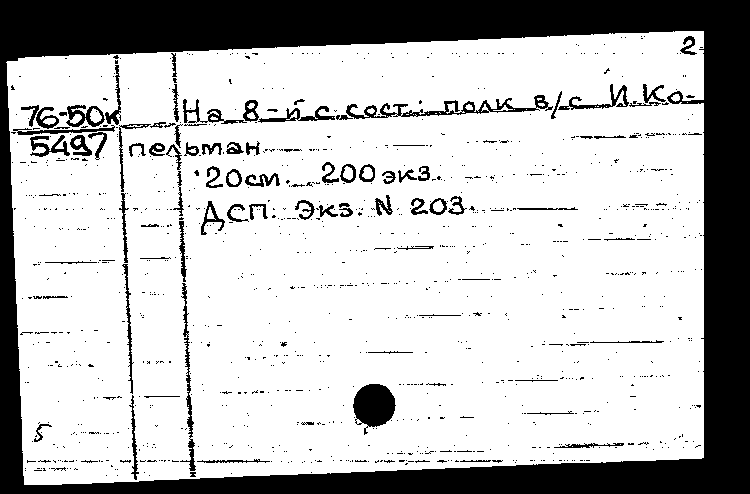 2
76-50к На 8-й с. сост.: полк в/с И.Ко-
5497 пельман
20см. 200 экз.
ДСП. Экз. N 203.
5